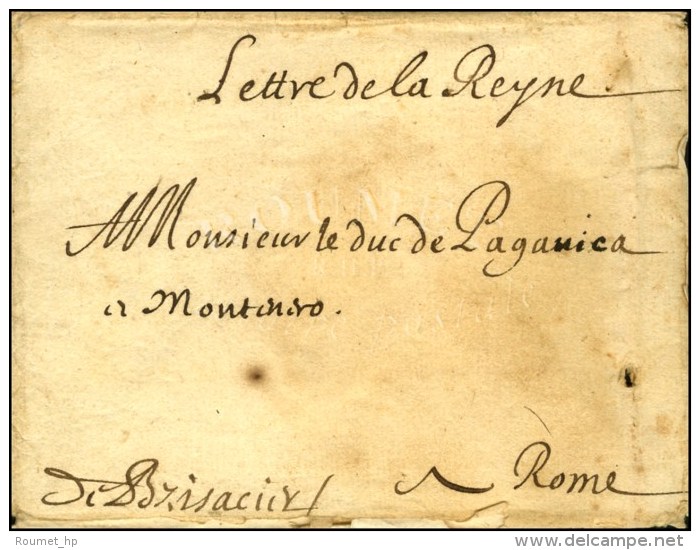 Lettre de la Reyne
A Monsieur le duc de Paganica
a Montenero.
A Rome
de Brisacier
Roumet_hp
delcampe.net